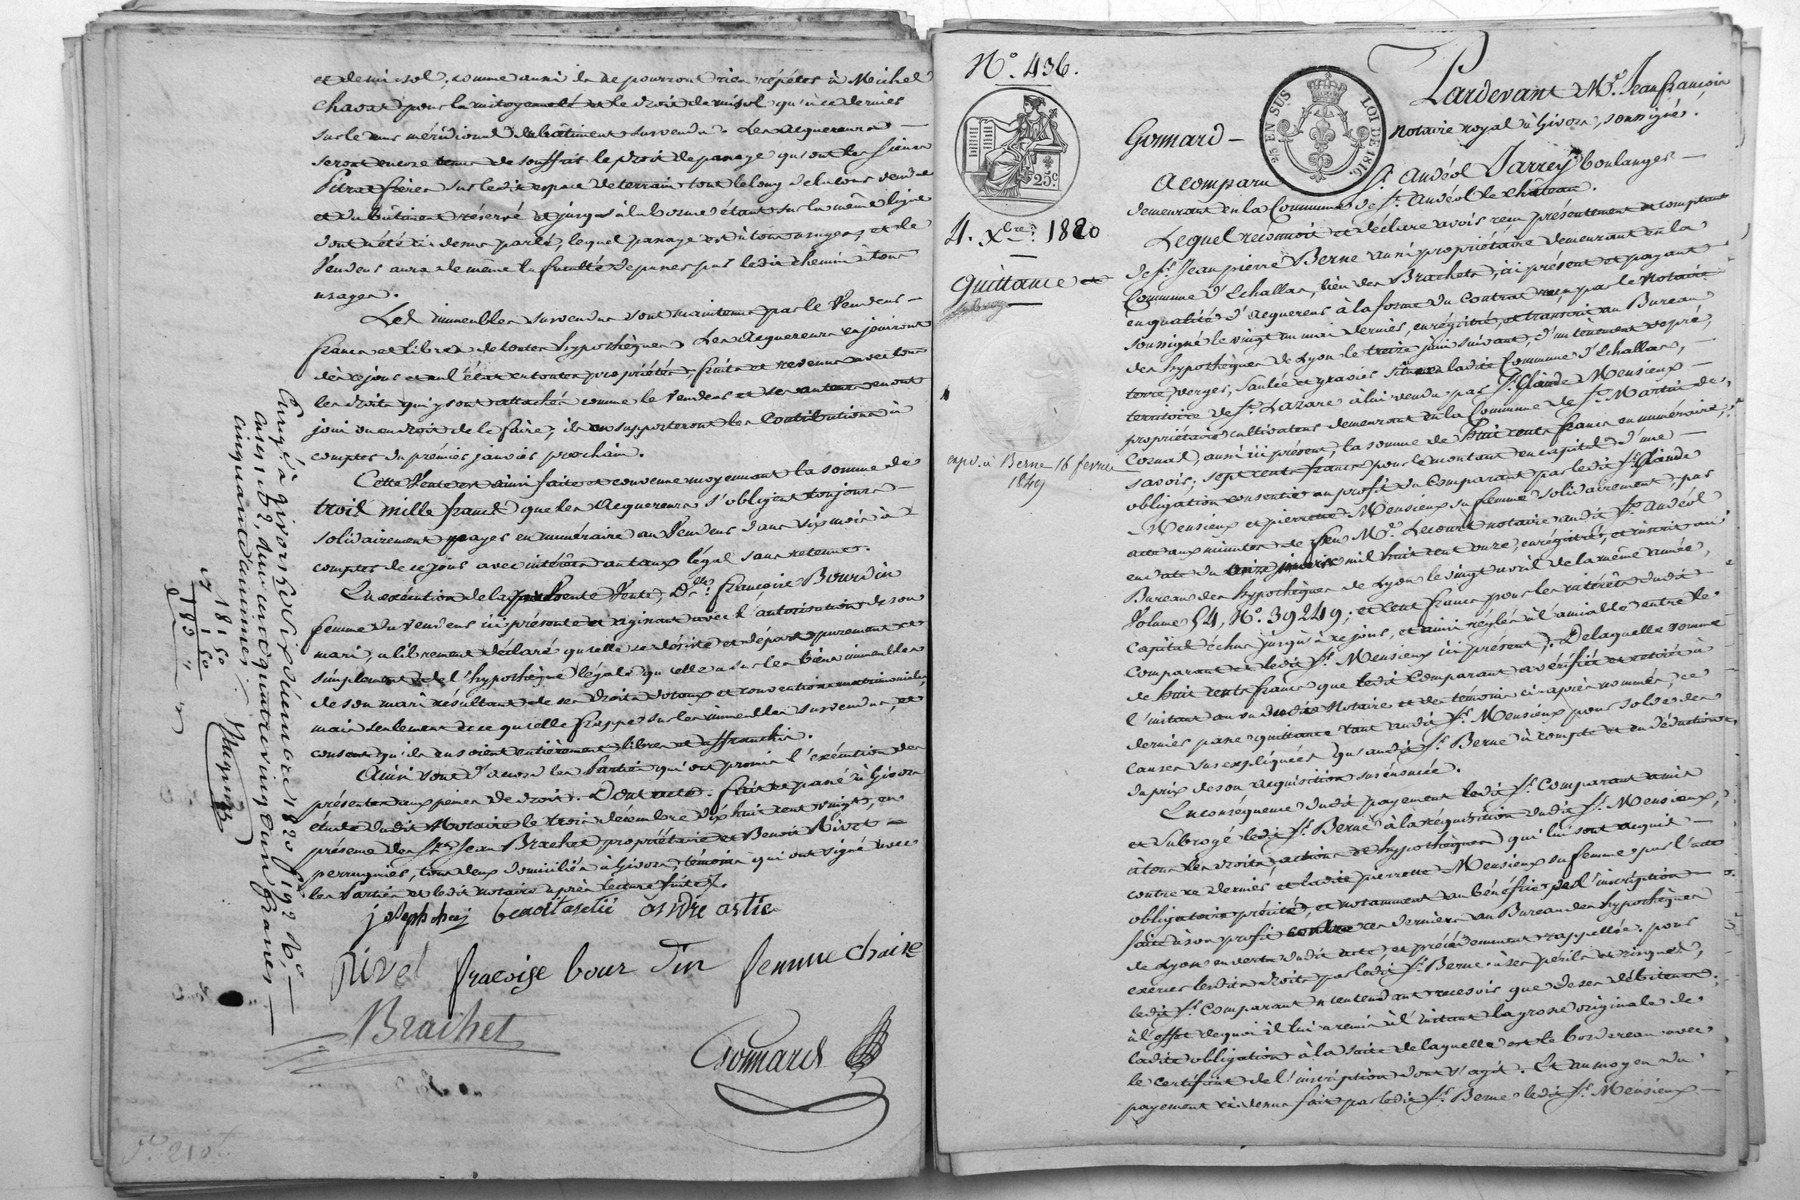 et demi sol, comme aussi ils ne pourront rien répéter à Michel
chavat pour la mitoyenneté et le droit de mi sol qu'a ce dernier
sur le mur méridional du bâtiment survendu. Les acquereurs —
seront encore tenus de souffrir le droit de passage qu'ont les sieurs
Pitrat frères sur ledit espace de terrain tout le long de la cour vendue
et du bâtiment réservé et jusqu'à la borne étant sur la même ligne
dont a été ci dessus parlé, lequel passage est à tous usages, et le
Vendeur aura de même la faculté de passer par ledit chemin à tous
usages.
Les immeubles survendus sont maintenus par le Vendeur —
francs et libres de toutes hypothèques. Les Acquereurs en jouiront
dès ce jour et en l'état en toutes propriétés, fruits et revenus avec tous
les droits qui y sont attachés comme le Vendeur et ses auteurs en ont
joui ou eu droit de le faire; ils en supporteront les Contributions à
compter du premier janvier prochain.
Cette Vente est ainsi faite et convenue moyennant la somme de
trois mille francs que les Acquereurs s'obligent toujours —
solidairement payer en numéraire au Vendeur dans six mois à
compter de ce jour avec intérêts au taux légal sans retenue.
En exécution de la présente Vente, De. françoise Bourdin
femme du vendeur ici présente et agissant avec l'autorisation de son
mari, a librement déclaré qu'elle se désiste et départ purement et
simplement de l'hypothèque légale qu'elle a sur les biens immeubles
de son mari résultant de ses droits dotaux et conventions matrimoniales
mais seulement en ce qu'elle frappe sur les immeubles survendus, et
consent qu'ils en soient entièrement libres et affranchis.
Ainsi sont d'accord les Parties qui ont promis l'exécution des
présentes aux peines de droit. Dont acte. fait et passé à Givors
étude dudit Notaire le trois décembre dix huit cent vingt, en
présence des Srs. Jean Brachet propriétaire et Benoit Rivet —
perruquier, tous deux domiciliés à Givors, témoins qui ont signé avec
les Parties et ledit notaire après lecture faite.
joseph benoit astié andré astie
Rivet francoise bour din femme
Brachet
Gonnard
Enrgé à givors le six décembre 1820 fo. 192 Vo. —
cases 1 et 2, reçu cent quatre vingt un francs —
cinquante centimes.
181 50
N.o 436.
25c
4. Xbre. 1820
Quittance et
exp. à Berne 16 fevrier
1849
25 EN SUS
LOI DE 1816
Pardevant Me. Jean françois
Gonnard — Notaire royal à Givors, soussigné.
A comparu Sr. Andéol Jarrey boulanger —
demeurant en la Commune de St. Andéol le château.
Lequel reconnoit et déclare avoir reçu présentement et comptant
de Sr. Jean pierre Berne aussi propriétaire demeurant en la
Commune d'Echallas, lieu des Brachets, ici présent et payant
en qualité d'acquereur à la forme du contrat reçu par le Notaire
soussigné le vingt un mai dernier, enregistré, et transcrit au Bureau
des hypothèques de Lyon le treize juin suivant, d'un tènement de pré,
terre, verger, saulée et gravier situé en ladite Commune d'Echallas, —
territoire de St. Lazare à lui vendu par Sr. Claude Mensieux —
propriétaire cultivateur demeurant en la Commune de St. Martin de
Cornas, aussi ici présent, la somme de huit cents francs en numéraire,
savoir; sept cents francs pour le montant en capital d'une —
obligation consentie au profit du Comparant par ledit Sr. Claude
Mensieux et pierrette Mensieux sa femme solidairement, par
acte aux minutes de feu Me. Lecourt notaire audit St. Andéol
en date du onze janvier mil huit cent onze, enregistré, et inscrit au
Bureau des hypothèques de Lyon le vingt avril de la même année,
Volume 54, No. 39249; et cent francs pour les intérêts dudit
Capital échus jusqu'à ce jour, et ainsi réglés à l'amiable entre le
Comparant et ledit Sr. Mensieux ici présent; De laquelle somme
de huit cents francs que ledit Comparant a vérifiée et retirée à
l'instant au vu dudit Notaire et des témoins ci après nommés, ce
dernier passe quittance tant audit Sr. Mensieux pour solde des
causes sus expliquées qu'audit Sr. Berne à compte et en déduction
du prix de son acquisition susénoncée.
En conséquence dudit payement ledit Sr. Comparant a mis
et subrogé ledit Sr. Berne à la requisition dudit Sr. Mensieux,
à tous les droits, actions et hypothèques qui lui sont acquis —
contre ce dernier et ladite pierrette Mensieux sa femme par l'acte
obligatoire précité, et notamment au bénéfice de l'inscription —
faite à son profit contre ces derniers au Bureau des hypothèques
de Lyon en vertu dudit acte, et précédemment rappellée, pour
exercer lesdits droits par ledit Sr. Berne à ses perils et risques,
ledit Sr. Comparant n'entendant recevoir que de ses débiteurs;
à l'effet de quoi il lui a remis à l'instant la grosse originale de
ladite obligation à la suite de laquelle est le bordereau avec
le certificat de l'inscription dont s'agit. Et au moyen du
payement ci dessus fait par ledit Sr. Berne ledit Sr. Mensieux —